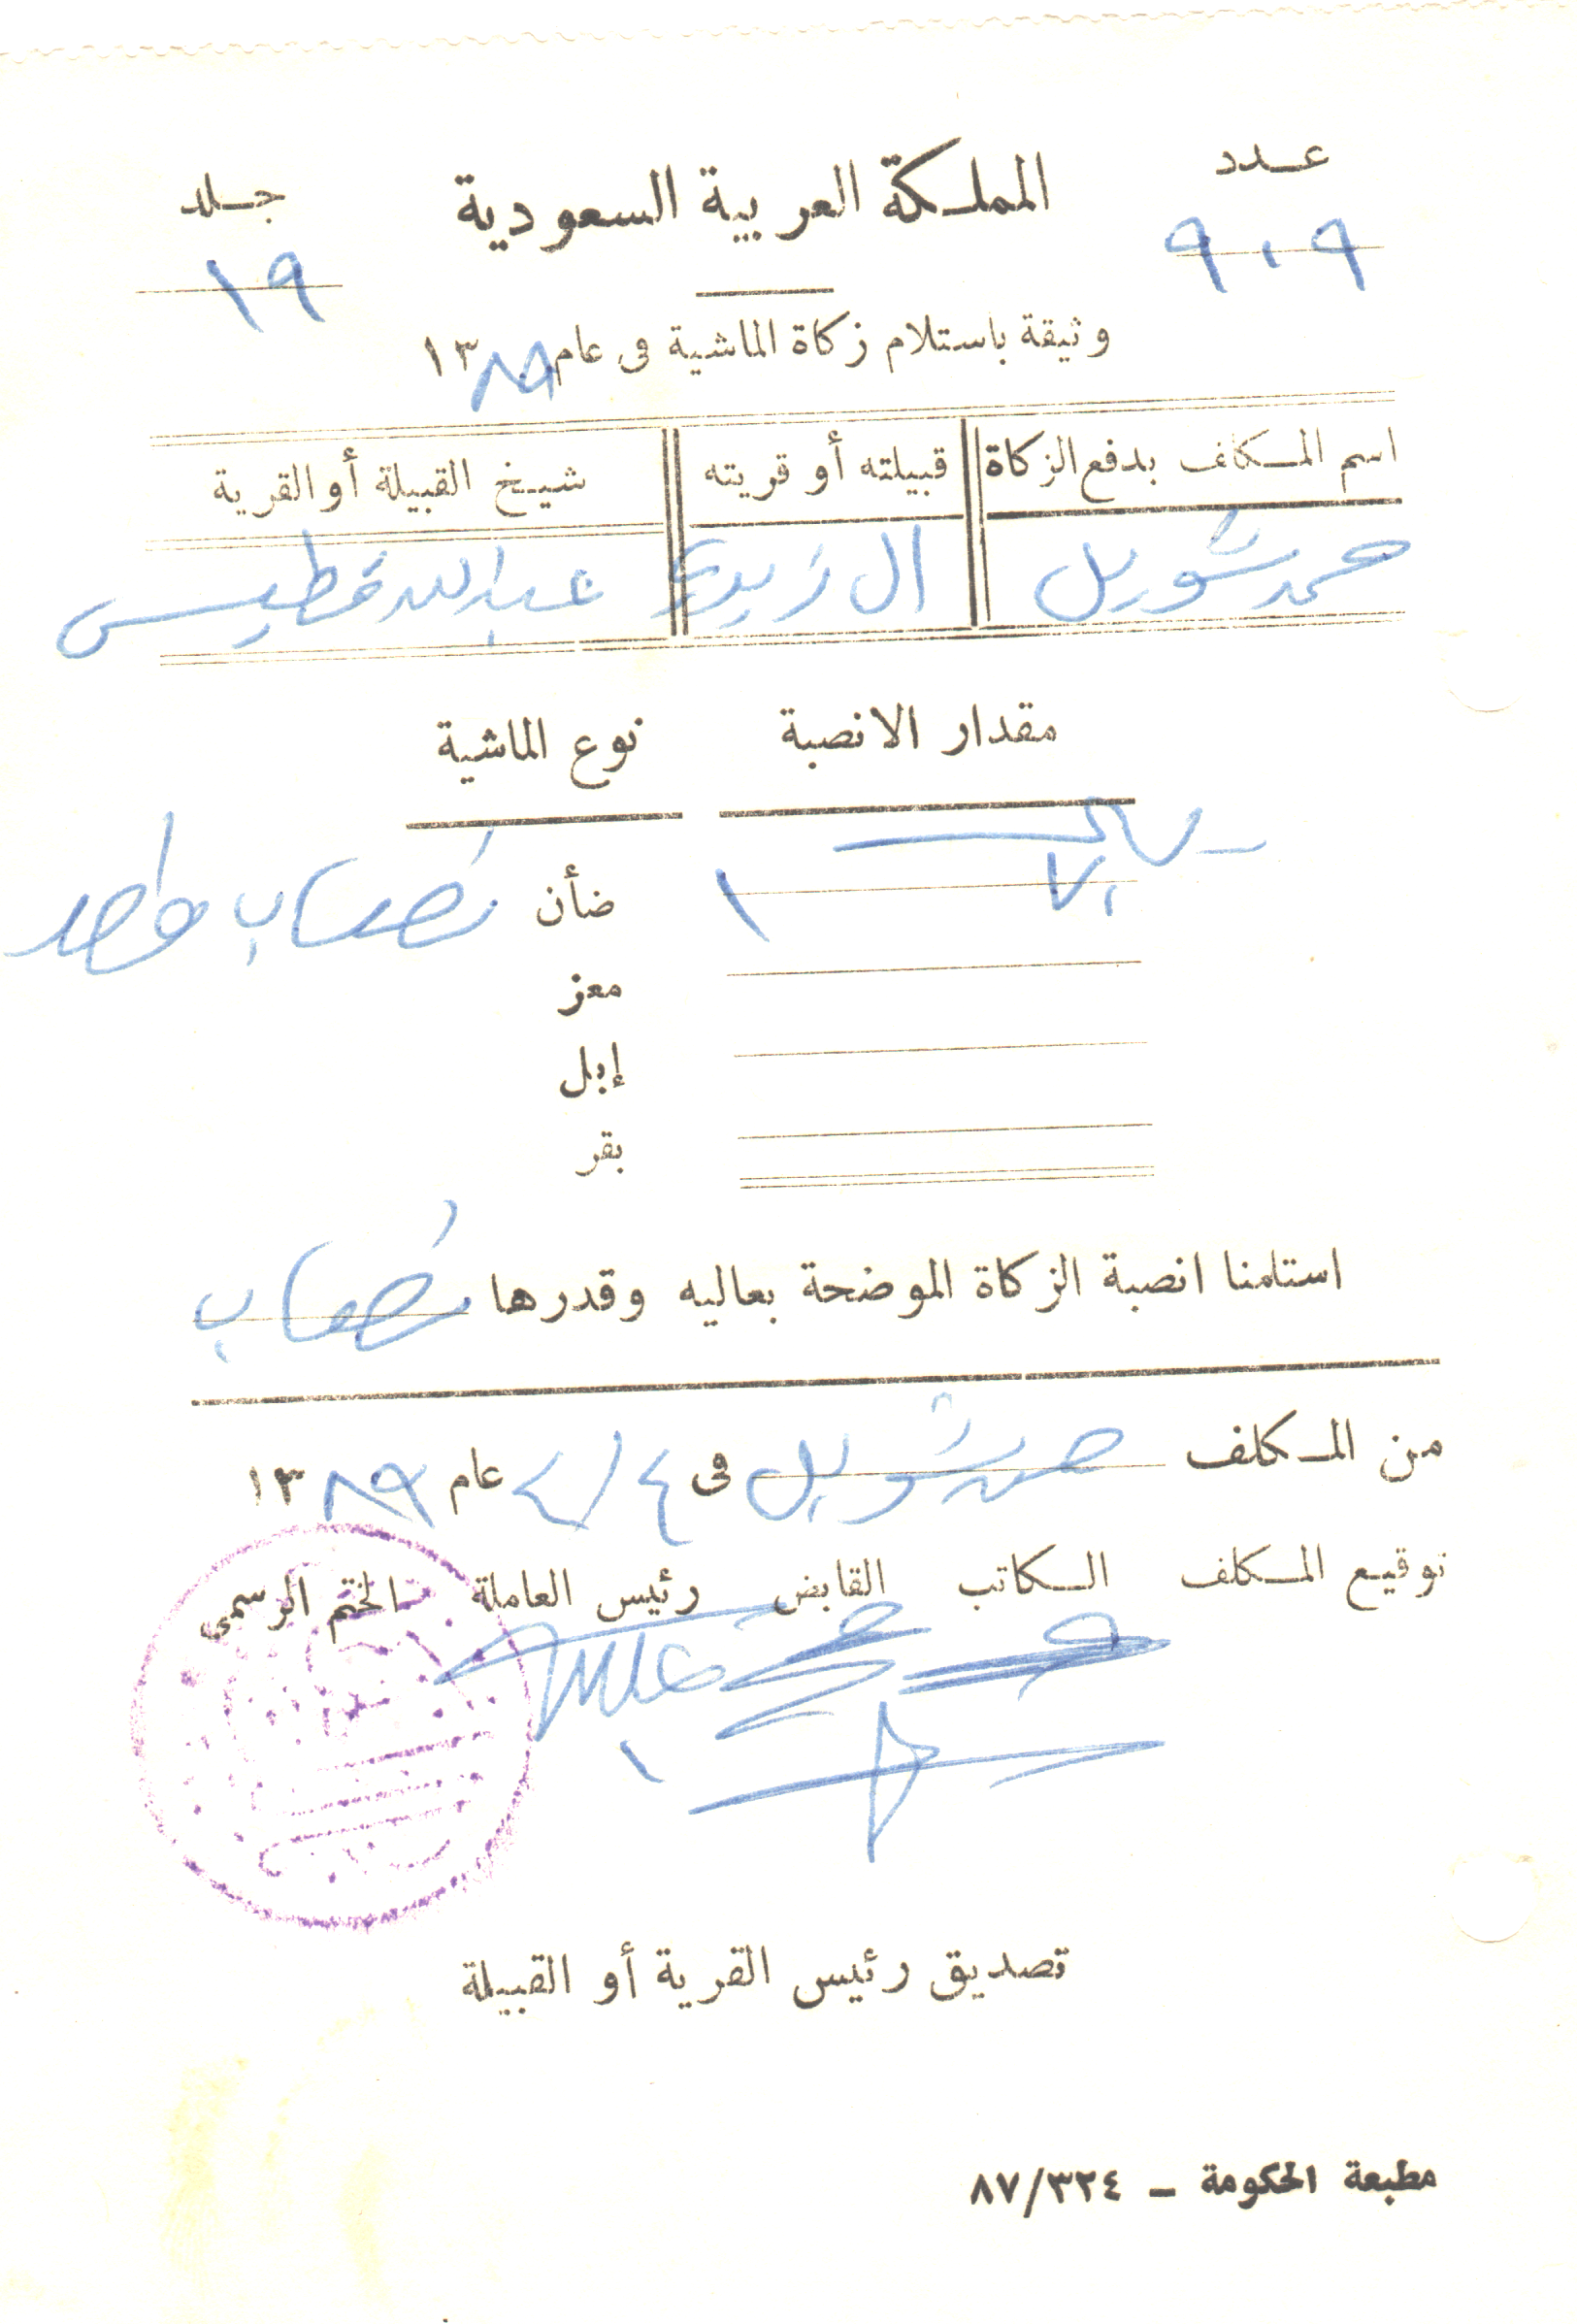 عدد
٩٠٩
المملكة العربية السعودية
جلد
١٩
وثيقة باستلام زكاة الماشية فى عام ١٣٨٩
اسم المكلف بدفع الزكاة قبيلته أو قريته شيخ القبيلة أو القرية
حمد شويل ال زيدي عبدالله قطيس
مقدار الانصبة نوع الماشية
١ ضأن نصاب واحد
معز
إبل
بقر
استلمنا انصبة الزكاة الموضحة بعاليه وقدرها نصاب
من المكلف حمد شويل فى ٤/٤ عام ١٣٨٩
توقيع المكلف الكاتب القابض رئيس العاملة الختم الرسمى
تصديق رئيس القرية أو القبيلة
مطبعة الحكومة - ٨٧/٣٢٤